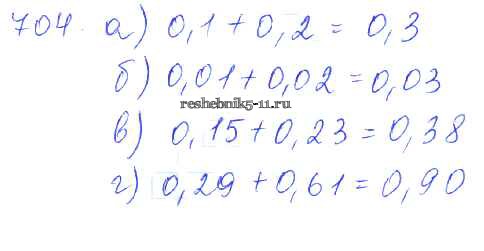 704. а) 0,1 + 0,2 = 0,3
б) 0,01 + 0,02 = 0,03
reshebnik5-11.ru
в) 0,15 + 0,23 = 0,38
г) 0,29 + 0,61 = 0,90